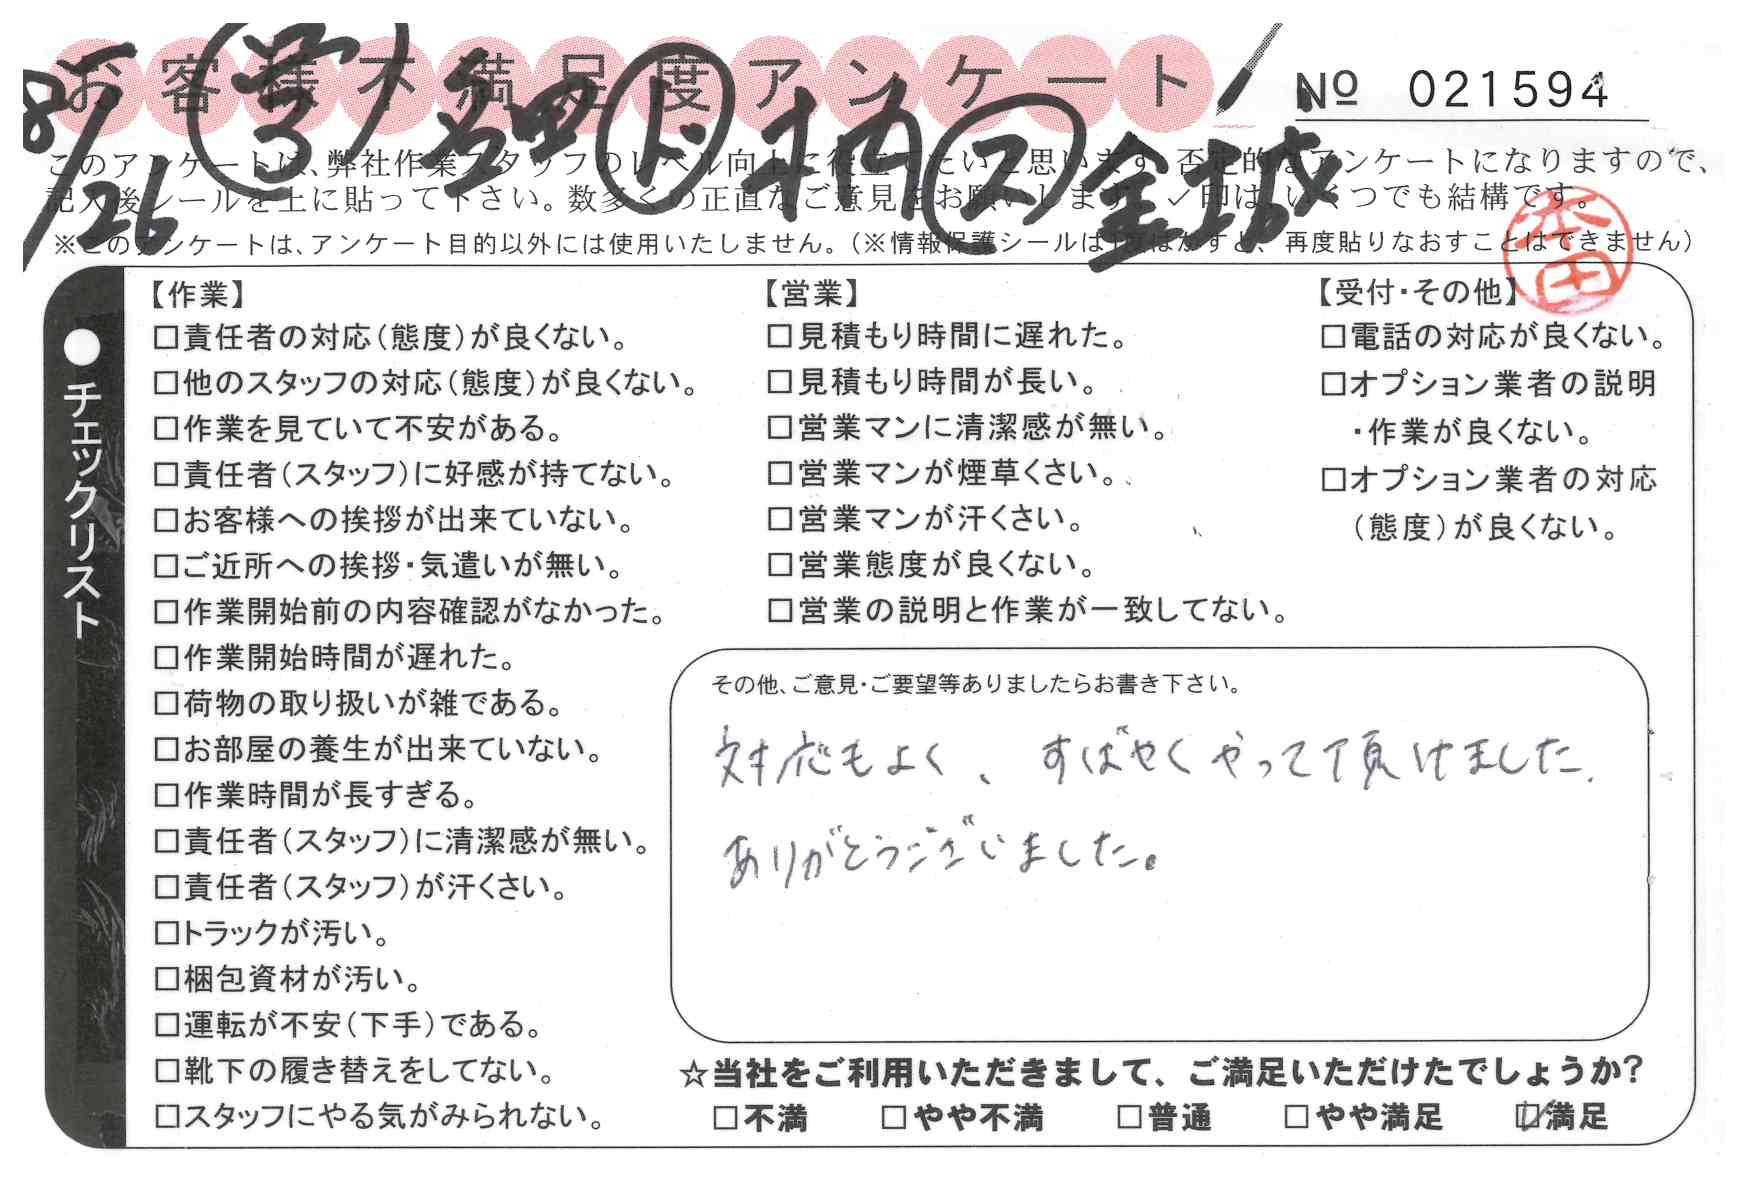 お客様不満足度アンケート
№ 021594
8/26
ド
ス 金城
このアンケートは、弊社作業スタッフのレベル向上に役立てたいと思います。否定的なアンケートになりますので、
記入後シールを上に貼って下さい。数多くの正直なご意見をお願いします。✓印は、いくつでも結構です。
※このアンケートは、アンケート目的以外には使用いたしません。(※情報保護シールは1度はがすと、再度貼りなおすことはできません)
本田
●チェックリスト
【作業】
□責任者の対応(態度)が良くない。
□他のスタッフの対応(態度)が良くない。
□作業を見ていて不安がある。
□責任者(スタッフ)に好感が持てない。
□お客様への挨拶が出来ていない。
□ご近所への挨拶・気遣いが無い。
□作業開始前の内容確認がなかった。
□作業開始時間が遅れた。
□荷物の取り扱いが雑である。
□お部屋の養生が出来ていない。
□作業時間が長すぎる。
□責任者(スタッフ)に清潔感が無い。
□責任者(スタッフ)が汗くさい。
□トラックが汚い。
□梱包資材が汚い。
□運転が不安(下手)である。
□靴下の履き替えをしてない。
□スタッフにやる気がみられない。
【営業】
□見積もり時間に遅れた。
□見積もり時間が長い。
□営業マンに清潔感が無い。
□営業マンが煙草くさい。
□営業マンが汗くさい。
□営業態度が良くない。
□営業の説明と作業が一致してない。
【受付・その他】
□電話の対応が良くない。
□オプション業者の説明
・作業が良くない。
□オプション業者の対応
(態度)が良くない。
その他、ご意見・ご要望等ありましたらお書き下さい。
対応もよく、すばやくやって頂けました.
ありがとうございました。
☆当社をご利用いただきまして、ご満足いただけたでしょうか?
□不満 □やや不満 □普通 □やや満足 ☑満足